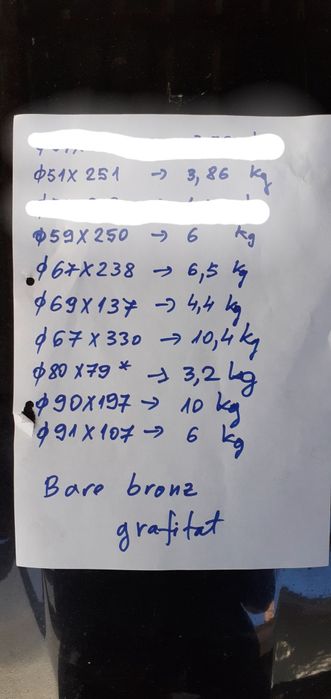 φ51X251 → 3,86 kg
φ59X250 → 6 kg
φ67X238 → 6,5 kg
φ69X137 → 4,4 kg
φ67X330 → 10,4 kg
φ80X79* → 3,2 kg
φ90X197 → 10 kg
φ91X107 → 6 kg
Bare bronz
grafitat